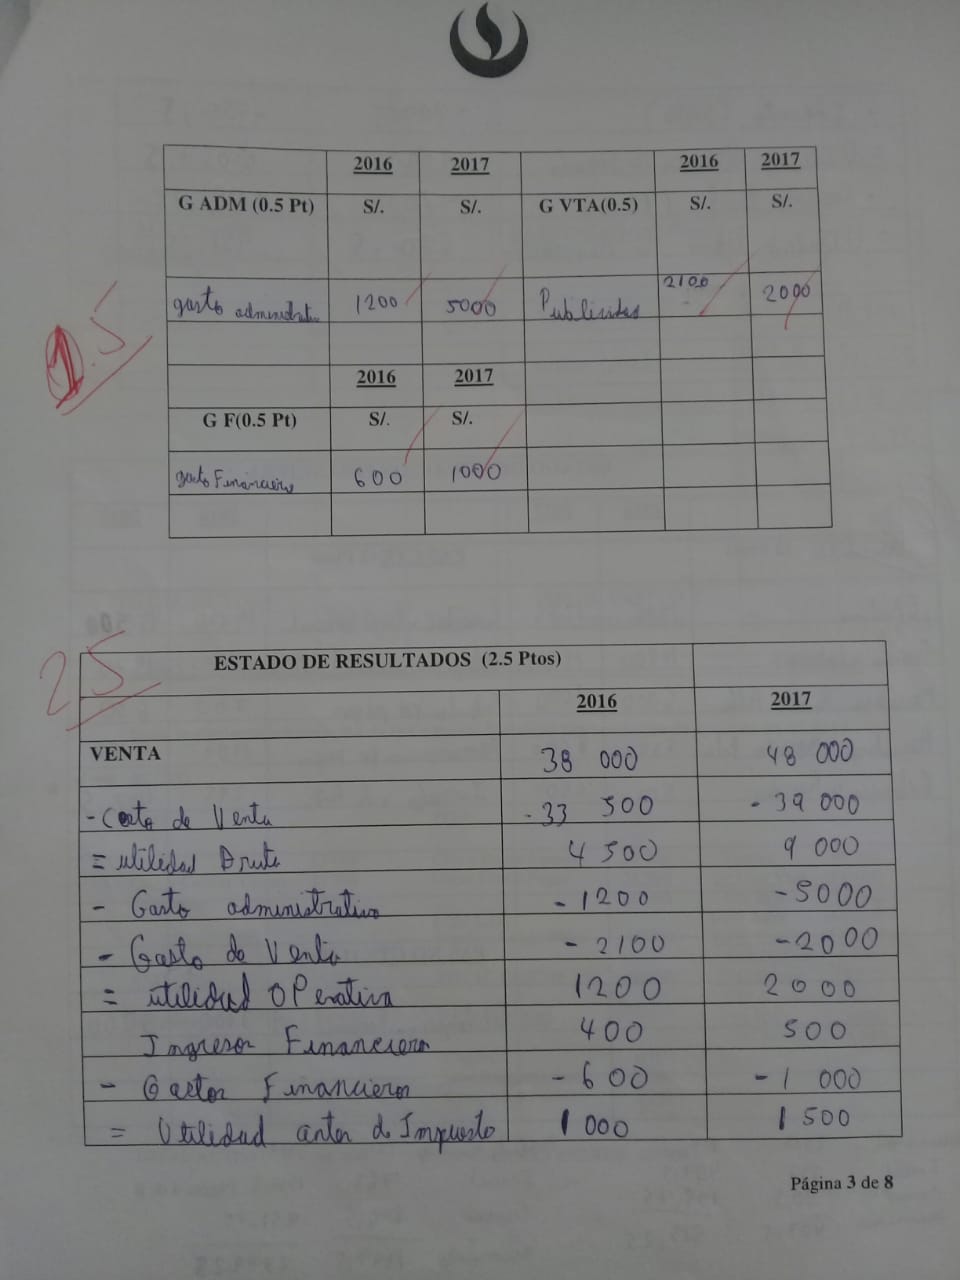 2016 2017 2016 2017
G ADM (0.5 Pt) S/. S/. G VTA(0.5) S/. S/.
gasto administrativo 1200 5000 Publicidad 2100 2000
1.5
2016 2017
G F(0.5 Pt) S/. S/.
gasto Financiero 600 1000
25
ESTADO DE RESULTADOS (2.5 Ptos)
2016 2017
VENTA 38 000 48 000
- Costo de Venta - 33 500 - 39 000
= utilidad Bruta 4 500 9 000
- Gasto administrativo - 1200 - 5000
- Gasto de Venta - 2100 - 2000
= utilidad OPerativa 1200 2000
Ingresos Financieros 400 500
- Gastos Financieros - 600 - 1 000
= Utilidad antes de Impuesto 1 000 1 500
Página 3 de 8